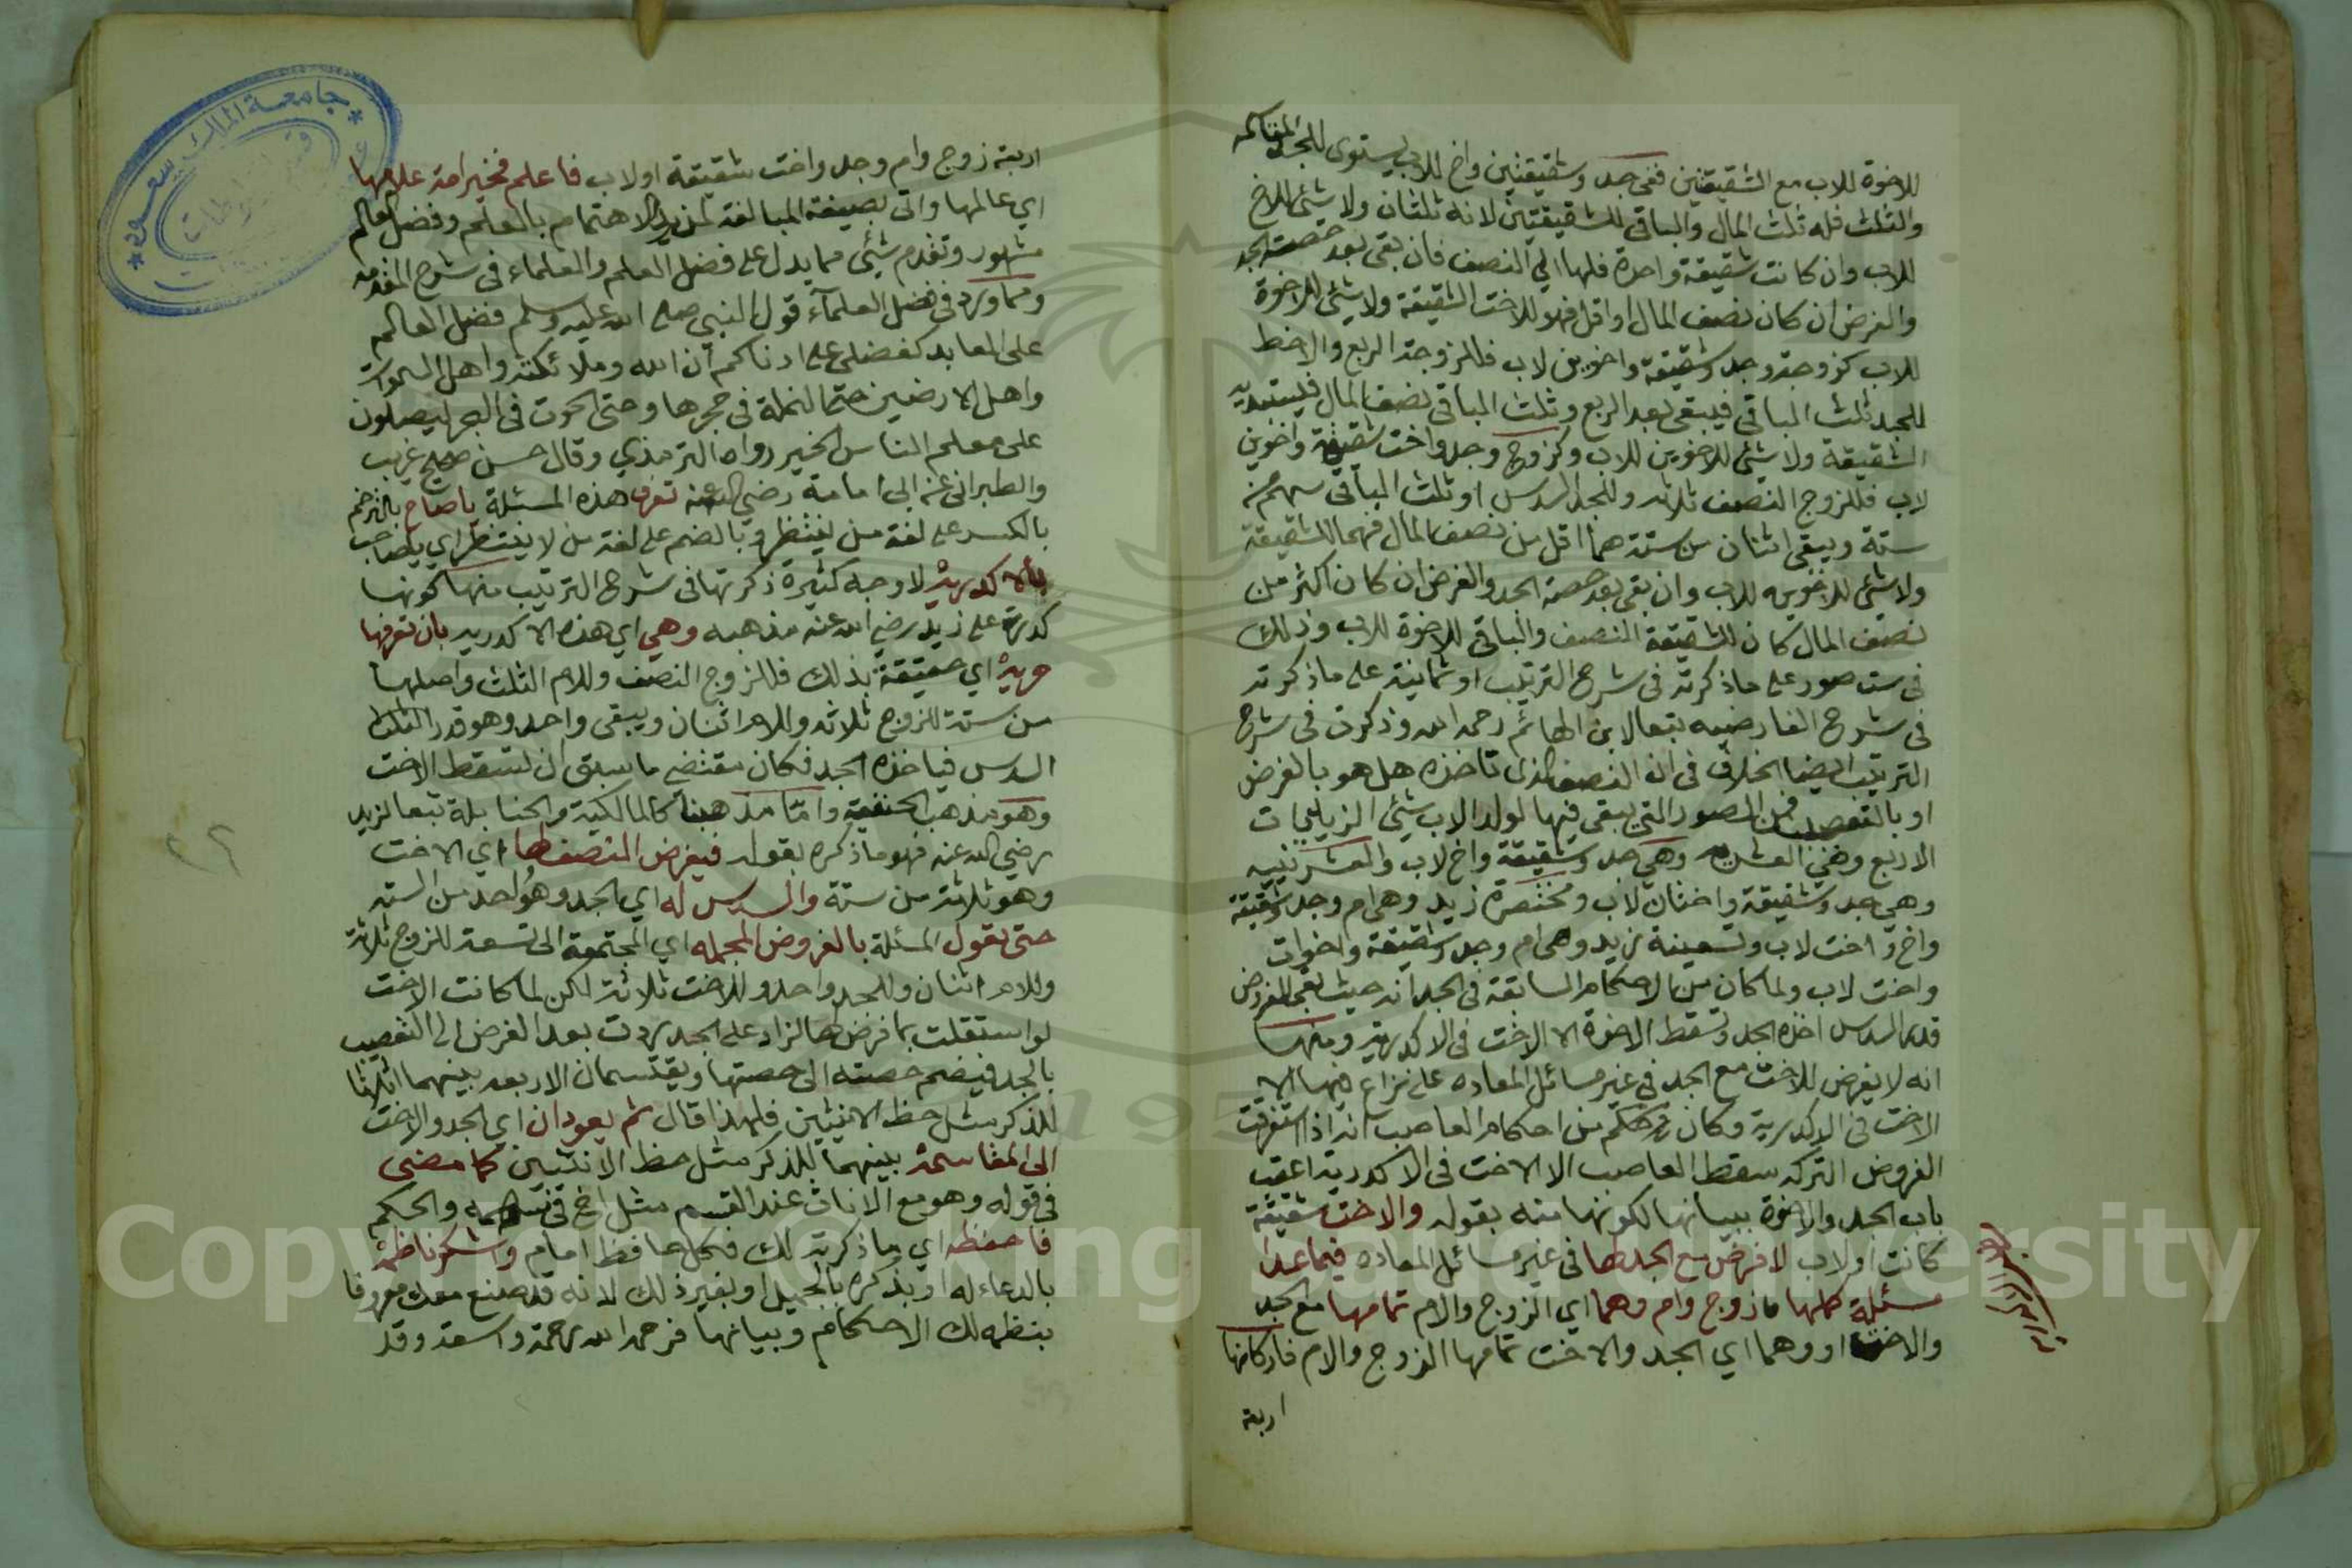 للاخوة للاب مع الشقيقتين ففي جد وشقيقتين واخ للاب يستوي للجد المقاسمة
والثلث فله ثلث المال والباقي للشقيقتين لانه ثلثان ولا شئ للاخ
للاب وان كانت شقيقة واحدة فلها الى النصف فان بقي بعد حصة الجد
والفرض ان كان نصف المال او اقل فهو للاخت الشقيقة ولا شئ للاخوة
للاب كزوجة وجد وشقيقة واخوين لاب فللزوجة الربع والاحظ
للجد ثلث الباقي فيبقى بعد الربع وثلث الباقي نصف المال
الشقيقة ولا شئ للاخوين للاب وكزوج وجد واخت شقيقة واخوين
لاب فللزوج النصف ثلاثه وللجد السدس او ثلث الباقي سهم من
ستة ويبقى اثنان من ستة هما اقل من نصف المال فهما للشقيقة
ولا شئ للاخوين للاب وان بقي بعد حصة الجد والفرض ان كان اكثر من
نصف المال كان للشقيقة النصف والباقي للاخوة للاب وذلك
في ست صور على ما ذكرته في شرح الترتيب او ثمانية على ما ذكرته
في شرح الفارضيه تبعا لابن الهائم رحمه الله وذكرت في شرح
الترتيب ايضا الخلاف في ان النصف الذي تاخذه هل هو بالفرض
او بالتعصيب فمن الصور التي يبقى فيها لولد الاب شئ الزيديات
الاربع وهي العشرية وهي جد وشقيقة واخ لاب والعشرينيه
وهي جد وشقيقة واختان لاب ومختصرة زيد وهي ام وجد وشقيقة
واخ واخت لاب وتسعينة زيد وهي ام وجد وشقيقة واخوات
واخت لاب ولما كان من الاحكام السابقة في الجد انه حيث بقي للفروض
قدر السدس اخذه الجد وتسقط الاخوة الا الاخت في الاكدرية ومنها
انه لا يفرض للاخت مع الجد في غير مسائل المعاده على نزاع فيها الا
الاخت في الاكدرية وكان من احكام العاصب انه اذا استغرقت
الفروض التركه سقط العاصب الا الاخت في الاكدرية اعقب
باب الجد والاخوة ببيانها لكونها منه بقوله والاخت شقيقة
كانت او لاب لا فرض مع الجد لها في غير مسائل المعاده فيما عدا
مسئلة كملها زوج وام وهما اي الزوج والام تمامها مع الجد
والاخت او وهما اي الجد والاخت تمامها الزوج والام فاركانها
اربعة
اربعة زوج وام وجد واخت شقيقة او لاب فاعلم فخير امة علامها
اي عالمها واتى بصيغة المبالغة لمزيد الاهتمام بالعلم وفضل العالم
مشهور وتقدم شئ مما يدل على فضل العلم والعلماء في شرح المقدمه
ومما ورد في فضل العلمآء قول النبي صلى الله عليه وسلم فضل العالم
على العابد كفضلي على ادناكم ان الله وملائكته واهل السموات
واهل الارضين حتى النملة في جحرها وحتى الحوت في البحر ليصلون
على معلم الناس الخير رواه الترمذي وقال حسن صحيح غريب
والطبراني عنه الى امامة رضي الله عنه تعرف هذه المسئلة ياصاح بالترخيم
بالكسر على لغة من ينتظر وبالضم على لغة من لا ينتظر اي ياصاحب
بالاكدرية لاوجه كثيرة ذكرتها في شرح الترتيب منها كونها
كدرت على زيد رضي الله عنه مذهبه وهي اي هذه الاكدريه بان تعرفها
حرية اي حقيقة بذلك فللزوج النصف وللام الثلث واصلها
من ستة للزوج ثلاثه وللام اثنان ويبقى واحد وهو قدر
السدس فياخذه الجد فكان مقتضى ما سبق ان تسقط الاخت
وهو مذهب الحنفية واما مذهبنا كالمالكية والحنابلة تبعا لزيد
رضي الله عنه فهو ما ذكره بقوله فيفرض النصف لها اي الاخت
وهو ثلاثة من ستة والسدس له اي الجد وهو واحد من الستة
حتى تعول المسئلة بالفروض المجمله اي المجتمعة الى تسعة للزوج ثلاثة
وللام اثنان وللجد واحد وللاخت ثلاثة لكن لما كانت الاخت
لو استقلت بما فرض لها لزاد على الجد ردت بعد الفرض الى التعصيب
بالجد فيضم حصته الى حصتها ويقتسمان الاربعه بينهما اثلاثا
للذكر مثل حظ الانثيين فلهذا قال ثم يعودان اي الجد والاخت
الى المقاسمة بينهما للذكر مثل حظ الانثيين كما مضى
في قوله وهو مع الاناث عند القسم مثل اخ في سهمه والحكم
فاحفظه اي ما ذكرته لك فكل حافظ امام واشكر ناظمه
بالدعاء له او بذكره بالجميل او بغير ذلك لانه قد صنع معك معروفا
بنظمه لك الاحكام وبيانها فرحمه الله رحمة واسعة وقد
جامعة الملك سعود
Copyright © King Saud University
195